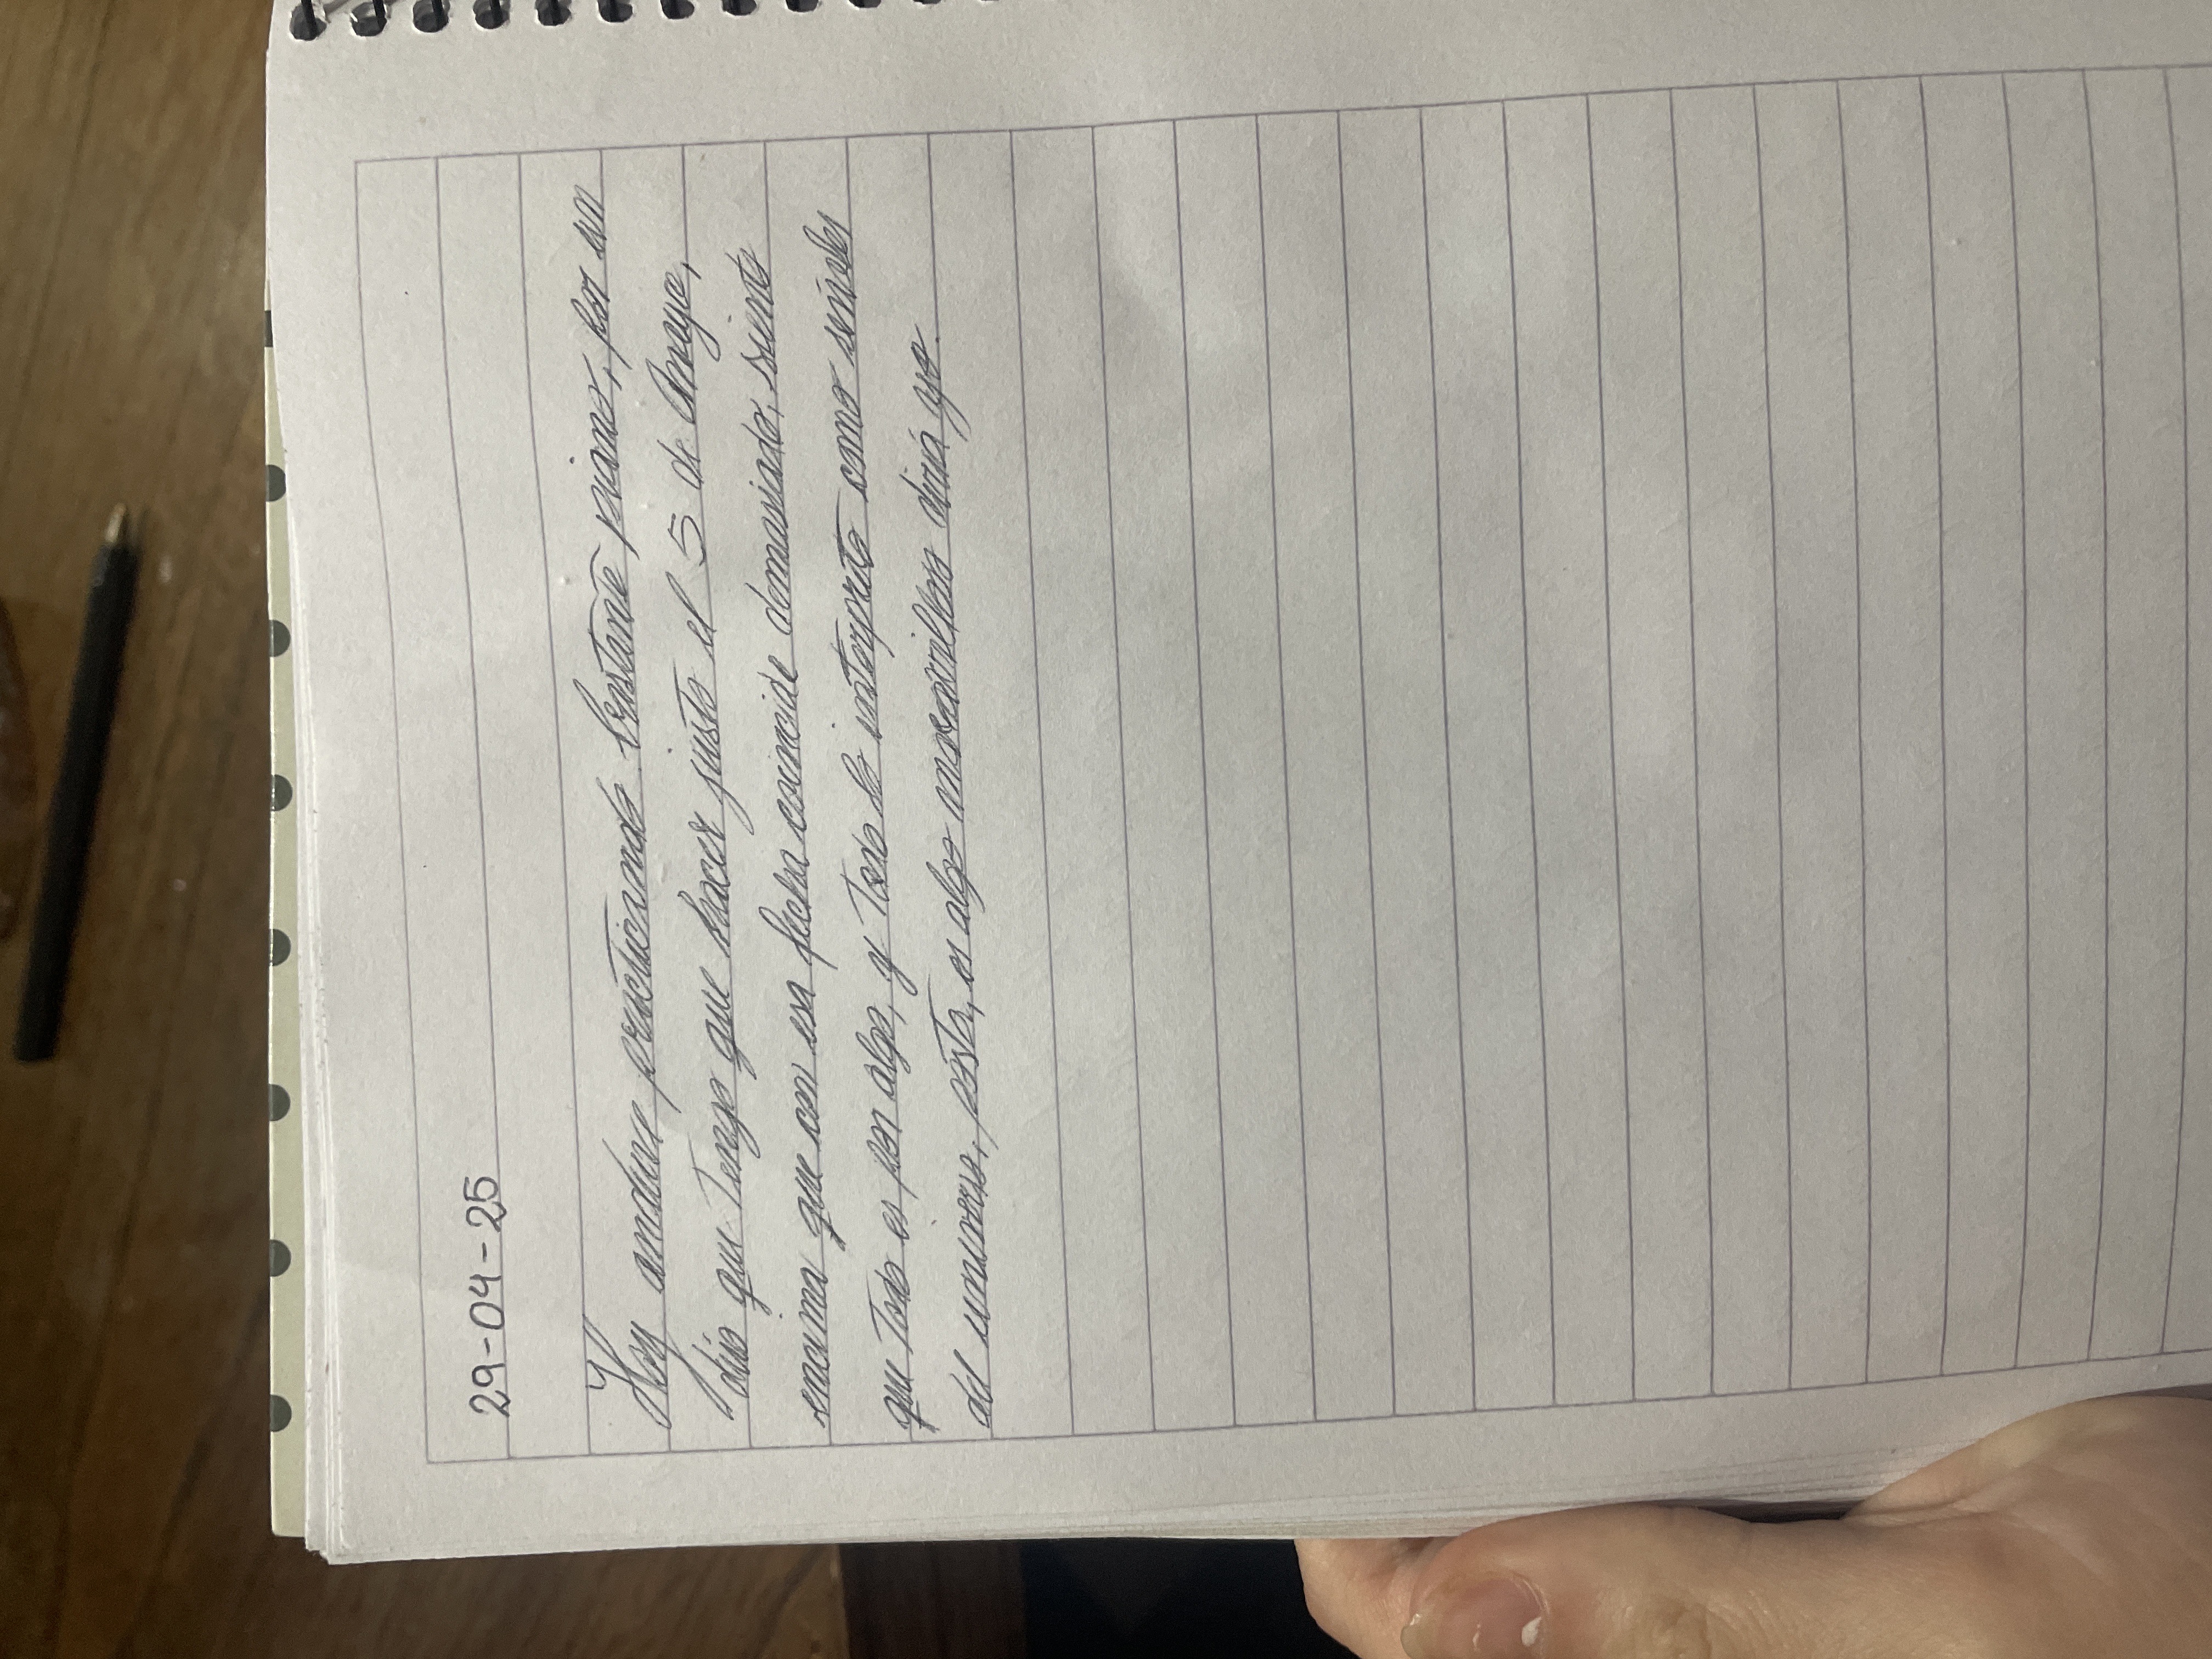 29-04-25
Hoy anduve practicando bastante piano, por un
dúo que tengo que hacer justo el 5 de Mayo,
encima que con esa fecha coincide demasiado, siento
que todo es por algo, y todo lo interpreto como señales
del universo, posta, es algo maravilloso diría yo.